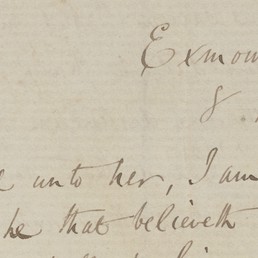 Exmou
8
unto her, I am
he that believeth